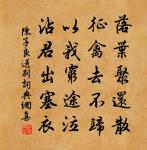 落葉聚還散
征禽去不歸
以我窮途泣
沾君出塞衣
陳子良送別詞典網集